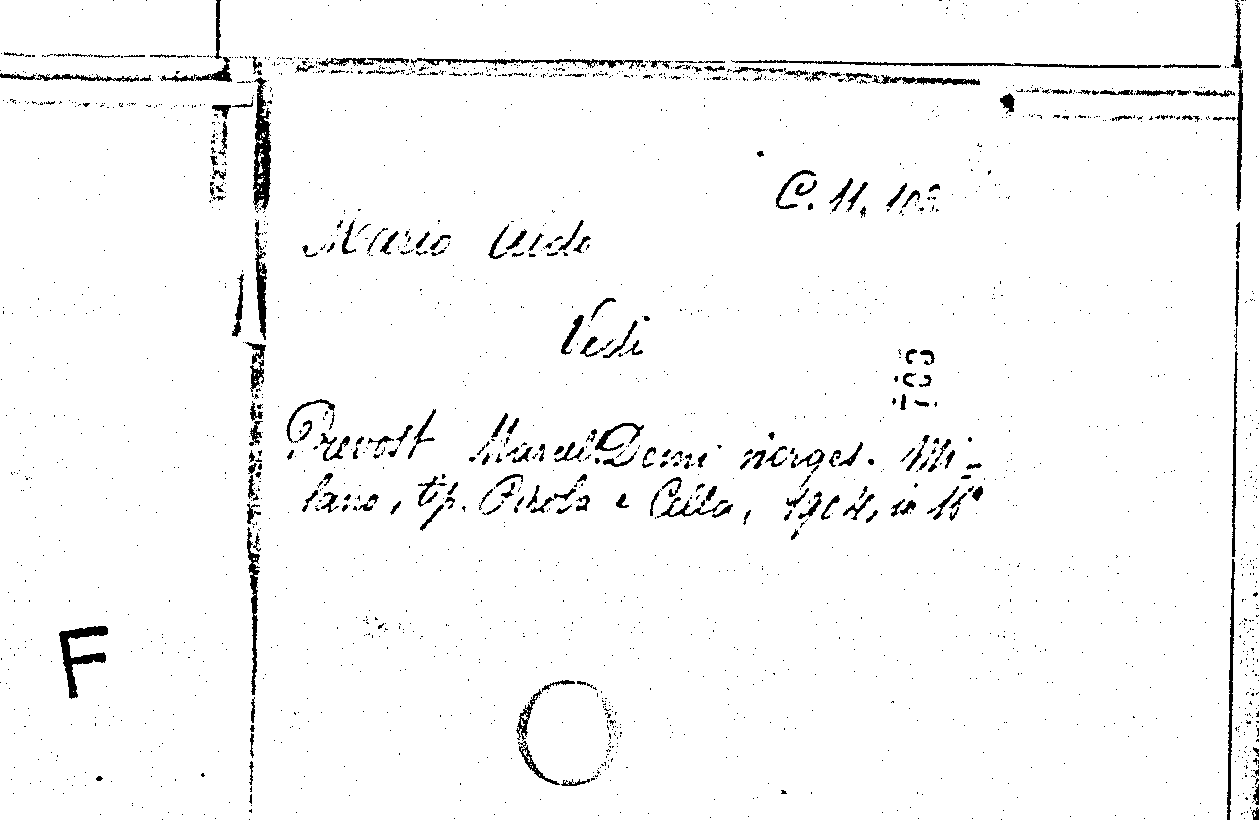 C. 11. 102
Mario Aldo
Vedi
103
Prevost Marcel. Demi vierges. Mi-
lano, tip. Pirola e Cella, 1904, in 16°
F